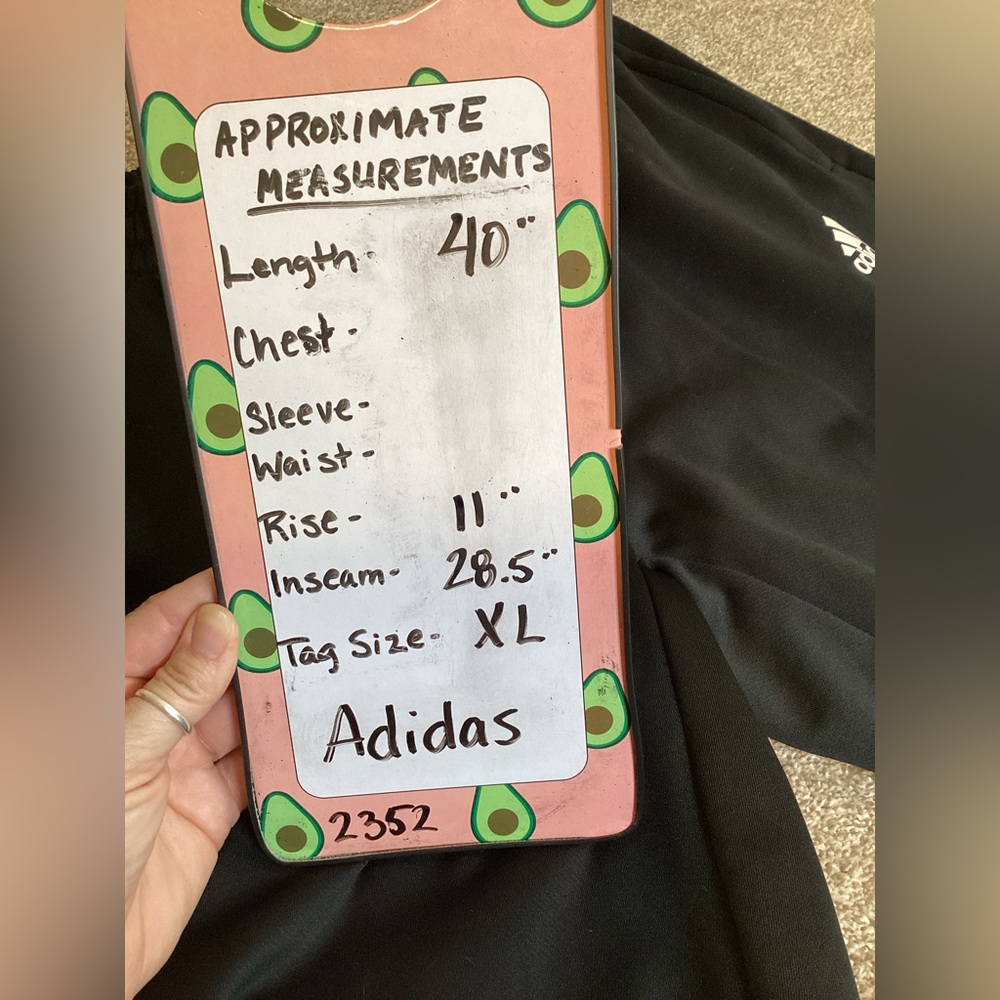 APPROXIMATE
MEASUREMENTS
Length- 40"
Chest-
Sleeve-
Waist-
Rise- 11"
Inseam- 28.5"
Tag Size- XL
Adidas
2352